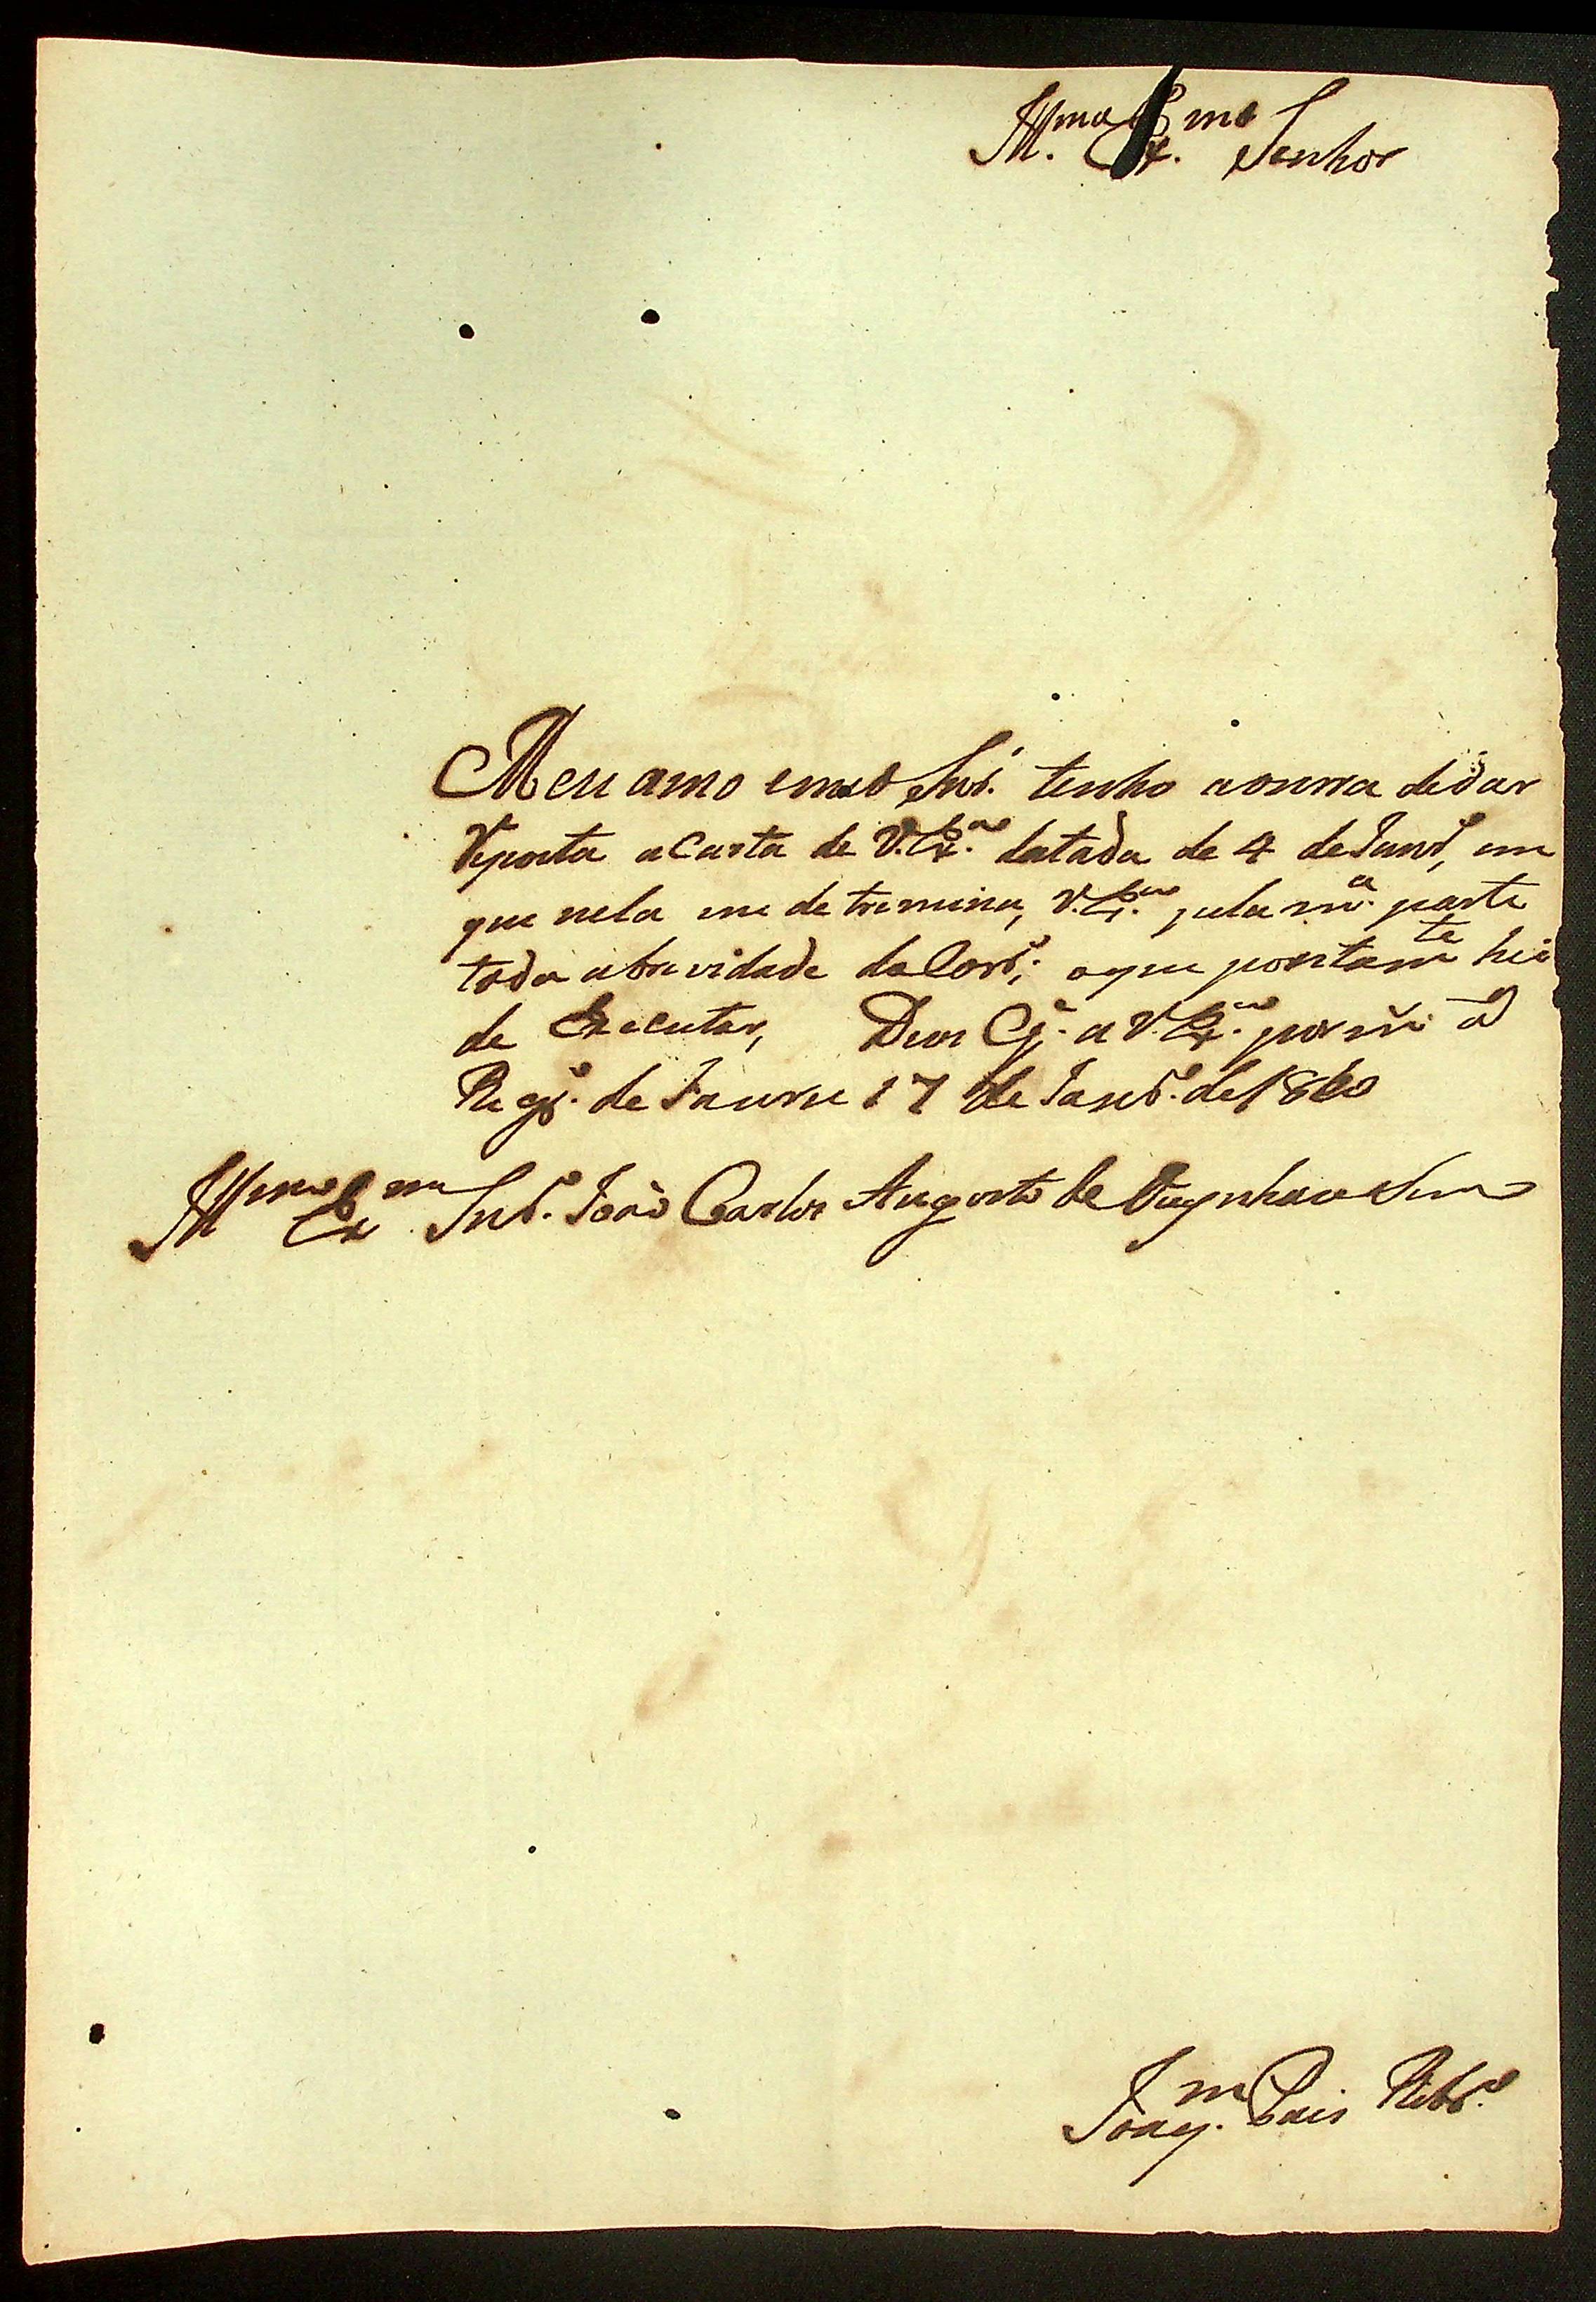 Ill.mo Ex.mo Senhor
Meu amo emeo Snr. tenho aonrra dedar
Reposta aCarta de V. Ex.cia datada de 4 deJanr.o, em
que nela me detremina, V. Ex.cia, pela m.a parte
toda abrividade do Corr.o; oque prontam.te hei
de Executar, Deos G.e a V. Ex.cia por m. a.
Reg.o de Jaurue 17 de Janr.o de 1810
Ill.mo Ex.mo Snr. João Carlos Augosto de Oueynhaus
Joaq.m Pais Ribr.o